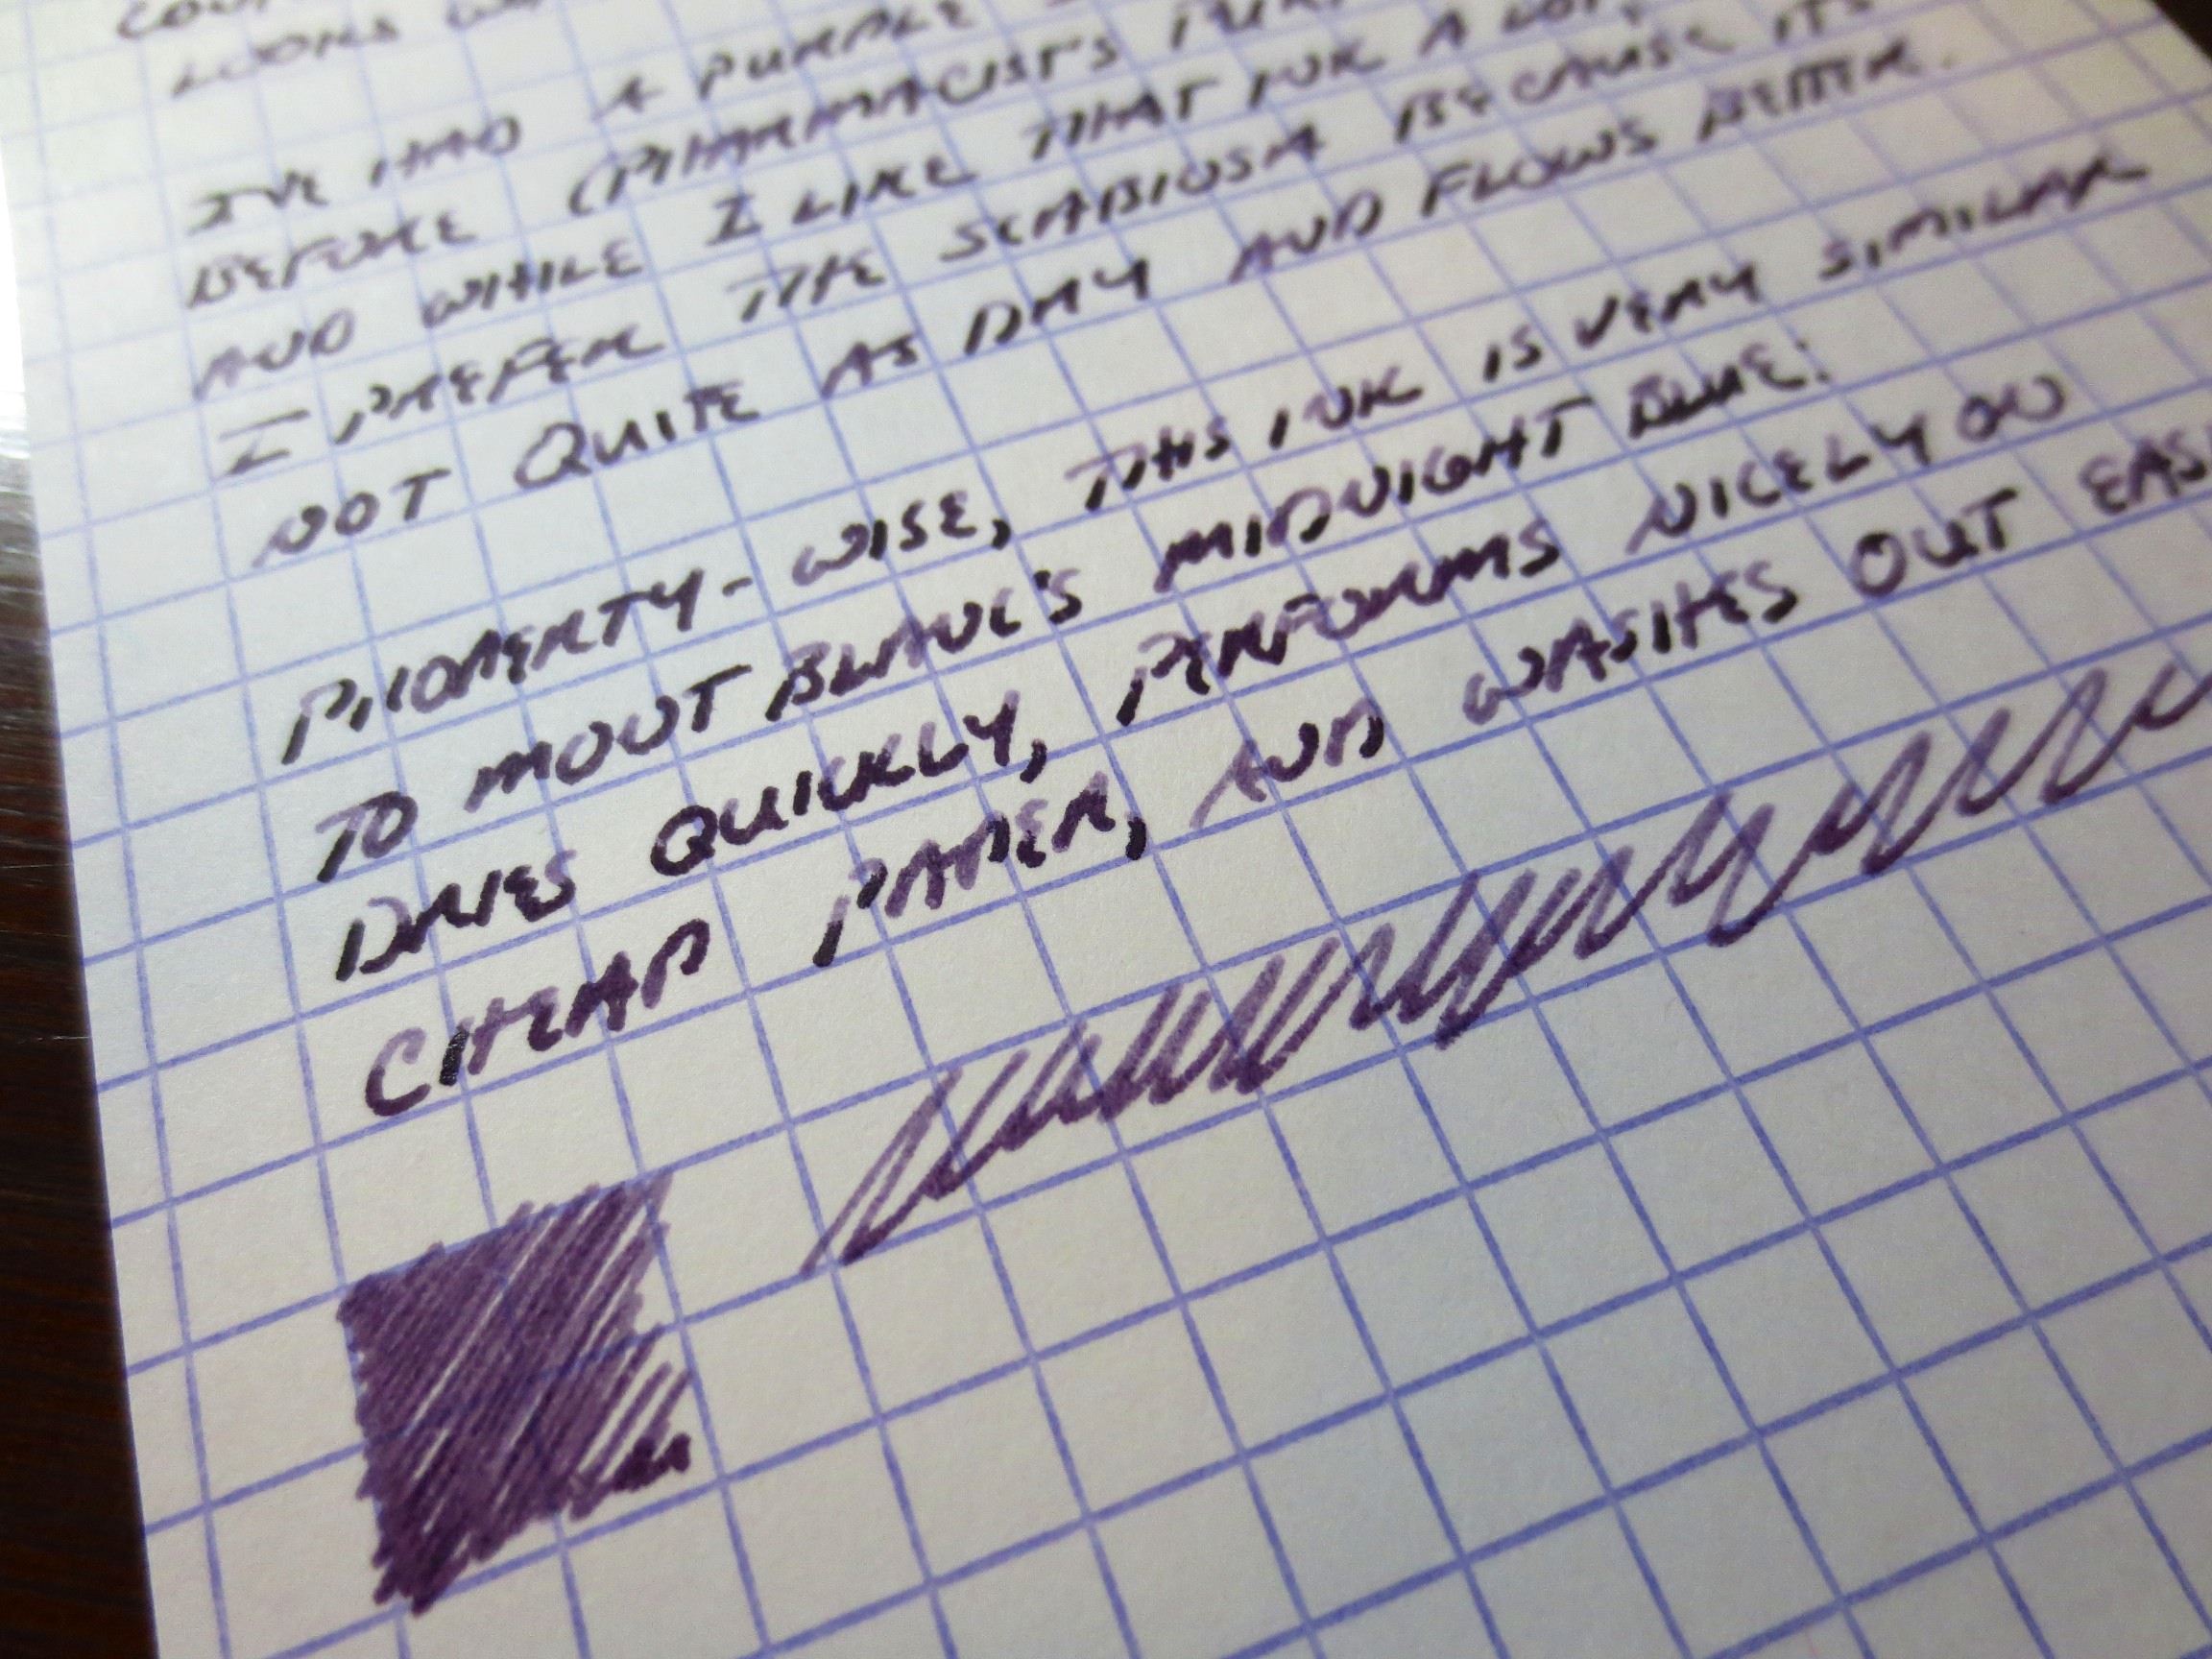 LOOKS
I'VE HAD A PURPLE
BEFORE (PHARMACIST'S
AND WHILE I LIKE THAT INK A LOT,
I PREFER THE SCABIOSA BECAUSE IT'S
NOT QUITE AS DRY AND FLOWS BETTER.
PROPERTY-WISE, THIS INK IS VERY SIMILAR
TO MONT BLANC'S MIDNIGHT BLUE:
DRIES QUICKLY, PERFORMS NICELY ON
CHEAP PAPER, AND WASHES OUT